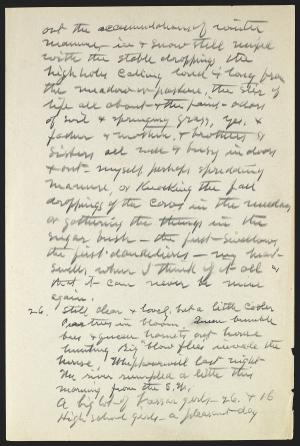 out the accumulations of winter
manure, ice & snow still mixed
with the stable droppings, the
high-holes calling loud & long from
the meadow or pasture, the stir of
life all about & the faint odors
of soil & springing grass, yes, &
father & mother, & brothers &
sisters all well & busy indoors
& out - myself perhaps spreading
manure, or knocking the fall
droppings of the cows in the meadow
or gathering the things in the
sugar bush - the first swallow,
the first dandelion - my heart
swells when I think of it all &
that it can never be more
again.
26. Still clear & lovely, but a little cooler
Pear trees in bloom. bumble
bees & queen hornets out house
hunting. Big blow flies invade the
house, Whippoorwill last night.
The river rumpled a little this
morning from the S.W.
A big lot of Vassar girls - 26, & 16
High School girls - a pleasant day